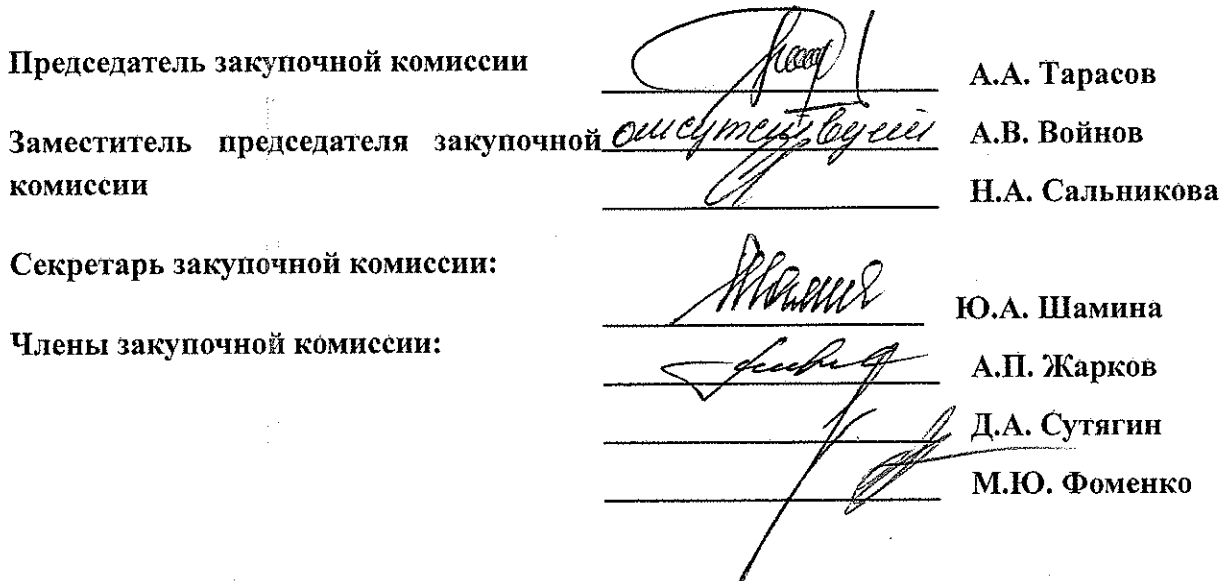 Председатель закупочной комиссии А.А. Тарасов
Заместитель председателя закупочной отсутствует А.В. Войнов
комиссии Н.А. Сальникова
Секретарь закупочной комиссии:
Ю.А. Шамина
Члены закупочной комиссии:
А.П. Жарков
Д.А. Сутягин
М.Ю. Фоменко